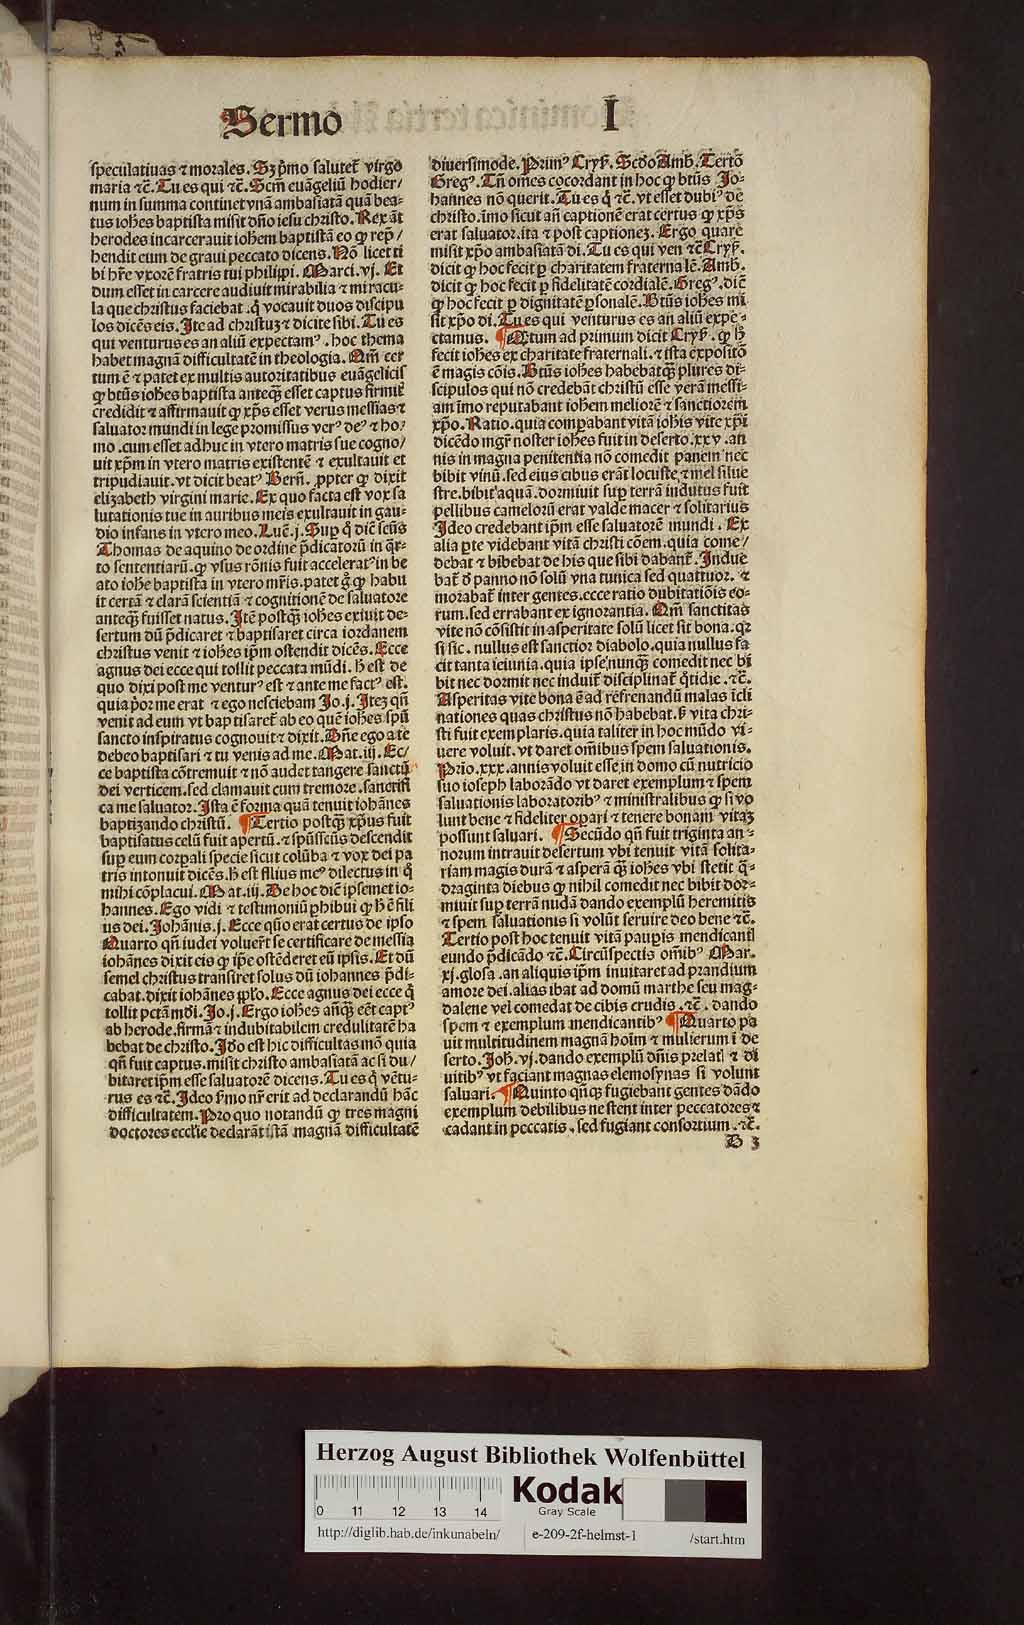 Sermo I
speculatiuas ⁊ morales. Sꝫ p̄mo salutet̄ virgo
maria ⁊c̄. Tu es qui ⁊c̄. Scm̄ euāgeliū hodier/
num in summa continet vnā ambasiatā quā bea-
tus ioh̄es baptista misit dn̄o iesu christo. Rex āt
herodes incarcerauit ioh̄em baptistā eo ꝙ rep̄/
hendit eum de graui peccato dicens. Nō licet ti
bi hr̄e vxorē fratris tui philippi. Marci. vj. Et
dum esset in carcere audiuit mirabilia ⁊ miracu-
la que christus faciebat. q̄ vocauit duos discipu
los dicēs eis. Ite ad christuꝫ ⁊ dicite sibi. Tu es
qui venturus es an aliū expectamꝰ. hoc thema
habet magnā difficultatē in theologia. Qm̄ cer
tum ē ⁊ patet ex multis autoritatibus euāgelicis
ꝙ btūs ioh̄es baptista anteqꝫ esset captus firmit̄
credidit ⁊ affirmauit ꝙ xp̄s esset verus messias ⁊
saluator mundi in lege promissus verꝰ deꝰ ⁊ ho-
mo. cum esset adhuc in vtero matris sue cogno/
uit xp̄m in vtero matris existentē ⁊ exultauit et
tripudiauit. vt dicit beatꝰ Bern̄. ꝓpter ꝙ dixit
elizabeth virgini marie. Ex quo facta est vox sa
lutationis tue in auribus meis exultauit in gau-
dio infans in vtero meo. Luc̄. j. Suꝑ q̄ dic̄ sctūs
Thomas de aquino de ordine p̄dicatorū in q̄r-
to sententiarū. ꝙ vsus rōnis fuit acceleratꝰ in be
ato ioh̄e baptista in vtero mr̄is. patet g̊ ꝙ habu
it certā ⁊ clarā scientiā ⁊ cognitionē de saluatore
anteqꝫ fuisset natus. Itē postqꝫ ioh̄es exiuit de-
sertum dū p̄dicaret ⁊ baptisaret circa iordanem
christus venit ⁊ ioh̄es ip̄m ostendit dicēs. Ecce
agnus dei ecce qui tollit peccata mūdi. h̄ est de
quo dixi post me venturꝰ est ⁊ ante me factꝰ est.
quia p̄or me erat ⁊ ego nesciebam Jo. j. Iteꝫ qn̄
venit ad eum vt baptisaret̄ ab eo quē ioh̄es sp̄ū
sancto inspiratus cognouit ⁊ dixit. Bn̄e ego a te
debeo baptisari ⁊ tu venis ad me. Mat. iij. Ec/
ce baptista cōtremuit ⁊ nō audet tangere sanctū
dei verticem. sed clamauit cum tremore. sanctifi
ca me saluator. Ista ē forma quā tenuit iohānes
baptizando christū. ¶ Tertio postqꝫ xp̄us fuit
baptisatus celū fuit apertū. ⁊ sp̄ūsscūs descendit
suꝑ eum corꝑali specie sicut colūba ⁊ vox dei pa
tris intonuit dicēs. h̄ est filius meꝰ dilectus in q̄
mihi cōplacui. Mat. iij. De hoc dic̄ ipsemet io-
hannes. Ego vidi ⁊ testimoniū ꝑhibui ꝙ h̄ ē fili
us dei. Johānis. j. Ecce qūo erat certus de ipso
Quarto qn̄ iudei voluer̄t se certificare de messia
iohānes dixit eis ꝙ ip̄e ostēderet eū ipsis. Et dū
semel christus transiret solus dū iohannes p̄di-
cabat. dixit iohānes ip̄so. Ecce agnus dei ecce q̄
tollit pctā mdi. Jo. j. Ergo ioh̄es an̄qꝫ eēt captꝰ
ab herode. firmā ⁊ indubitabilem credulitatē ha
bebat de christo. Jdo est hic difficultas mō quia
qn̄ fuit captus. misit christo ambasiatā ac si du/
bitaret ip̄m esse saluatorē dicens. Tu es q̄ vētu-
rus es ⁊c̄. Ideo ẜmo nr̄ erit ad declarandū hāc
difficultatem. Pro quo notandū ꝙ tres magni
doctores eccl̄ie declarāt istā magnā difficultatē
diuersimode. Primꝰ Cryẜ. Scd̄o Amb. Tertō
Gregꝰ. Tn̄ om̄es cōcordant in hoc ꝙ btūs Jo-
hannes nō querit. Tu es q̄ ⁊c̄. vt esset dubiꝰ de
christo. īmo sicut an̄ captionē erat certus ꝙ xp̄s
erat saluator. ita ⁊ post captioneꝫ. Ergo quare
misit xp̄o ambasiatā di. Tu es qui ven ⁊c̄ Cryẜ.
dicit ꝙ hoc fecit ꝑ charitatem fraternalē. Amb.
dicit ꝙ hoc fecit ꝑ fidelitatē cordialē. Gregꝰ. dic̄
ꝙ hoc fecit ꝑ dignitatē ꝑsonalē. Btūs ioh̄es mi
sit xp̄o di. Tu es qui venturus es an aliū expe-
ctamus. ¶ Qtum ad primum dicit Cryẜ. ꝙ h̄
fecit ioh̄es ex charitate fraternali. ⁊ ista expositō
ē magis cōis. Btūs ioh̄es habebatqꝫ plures di-
scipulos qui nō credebāt christū esse verū messi-
am īmo reputabant ioh̄em meliorē ⁊ sanctiorem
xp̄o. Ratio. quia comꝑabant vitā ioh̄is vite xp̄i
dicēdo mgr̄ noster ioh̄es fuit in deserto. xxv. an
nis in magna penitentia nō comedit panem nec
bibit vinū. sed eius cibus erāt locuste ⁊ mel silue
stre. bibit aquā. dormiuit suꝑ terrā indutus fuit
pellibus camelorū erat valde macer ⁊ solitarius
Ideo credebant ip̄m esse saluatorē mundi. Ex
alia ꝑte videbant vitā christi cōem. quia come/
debat ⁊ bibebat de his que sibi dabant̄. Indue
bat̄ d̄ panno nō solū vna tunica sed quattuor. ⁊
morabat̄ inter gentes. ecce ratio dubitatiōis eo-
rum. sed errabant ex ignorantia. Qm̄ sanctitas
vite nō cōsistit in asperitate solū licet sit bona. qꝛ
si sic. nullus est sanctior diabolo. quia nullus fa
cit tanta ieiunia. quia ipse nunqꝫ comedit nec bi
bit nec dormit nec induit̄ disciplinat̄ q̄tidie. ⁊c̄.
Asperitas vite bona ē ad refrenandū malas īcli
nationes quas christus nō habebat. ẜ vita chri-
sti fuit exemplaris. quia taliter in hoc mūdo vi-
uere voluit. vt daret om̄ibus spem saluationis.
Prīo. xxx. annis voluit esse in domo cū nutricio
suo ioseph laborādo vt daret exemplum ⁊ spem
saluationis laboratoribꝰ ⁊ ministralibus ꝙ si vo
lunt bene ⁊ fideliter oꝑari ⁊ tenere bonam vitaꝫ
possunt saluari. ¶ Secūdo qn̄ fuit triginta an-
norum intrauit desertum vbi tenuit vitā solita-
riam magis durā ⁊ asperā qꝫ ioh̄es vbi stetit q̄-
draginta diebus ꝙ nihil comedit nec bibit dor-
miuit suꝑ terrā nudā dando exemplū heremitis
⁊ spem saluationis si volūt seruire deo bene ⁊c̄.
Tertio post hoc tenuit vitā pauꝑis mendicantī
eundo p̄dicādo ⁊c̄. Circūspectis om̄ibꝰ Mar.
xj. glosa. an aliquis ip̄m inuitaret ad prandium
amore dei. alias ibat ad domū marthe seu mag-
dalene vel comedat de cibis crudis. ⁊c̄. dando
spem ⁊ exemplum mendicantibꝰ ¶ Quarto pa
uit multitudinem magnā hoīm ⁊ mulierum ī de
serto. Joh̄. vj. dando exemplū dn̄is prelatī ⁊ di
uitibꝰ vt faciant magnas elemosynas si volunt
saluari. ¶ Quinto qn̄qꝫ fugiebant gentes dādo
exemplum debilibus ne stent inter peccatores ⁊
cadant in peccatis. sed fugiant consortium. ⁊c̄.
B 3
Herzog August Bibliothek Wolfenbüttel
0 11 12 13 14
Kodak
Gray Scale
http://diglib.hab.de/inkunabeln/ e-209-2f-helmst-1 /start.htm